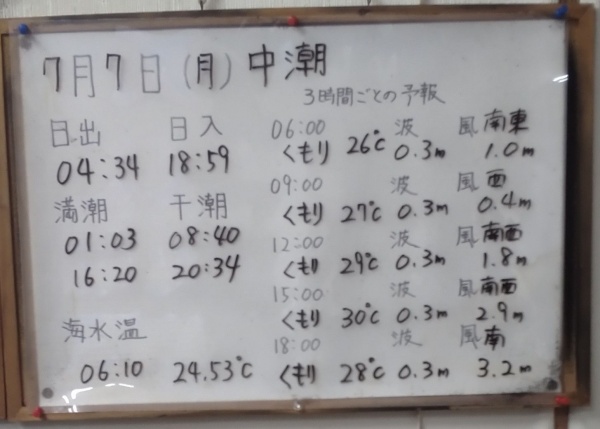 7月7日(月)中潮
3時間ごとの予報
日出 日入
04:34 18:59
満潮 干潮
01:03 08:40
16:20 20:34
海水温
06:10 24.53℃
06:00 波 風 南東
くもり 26℃ 0.3m 1.0m
09:00 波 風 西
くもり 27℃ 0.3m 0.4m
12:00 波 風 南西
くもり 29℃ 0.3m 1.8m
15:00 波 風 南西
くもり 30℃ 0.3m 2.9m
18:00 波 風 南
くもり 28℃ 0.3m 3.2m